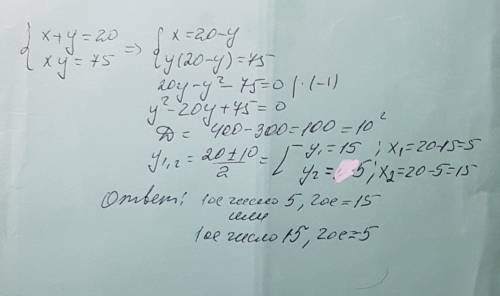 { x+y=20 => { x=20-y
{ xy=75 { y(20-y)=75
20y-y²-75=0 |·(-1)
y²-20y+75=0
D= 400-300=100=10²
y₁,₂= (20±10)/2 = [ y₁=15 ; x₁=20-15=5
y₂= 5; x₂=20-5=15
Ответ: 1ое число 5, 2ое=15
или
1ое число 15, 2ое=5